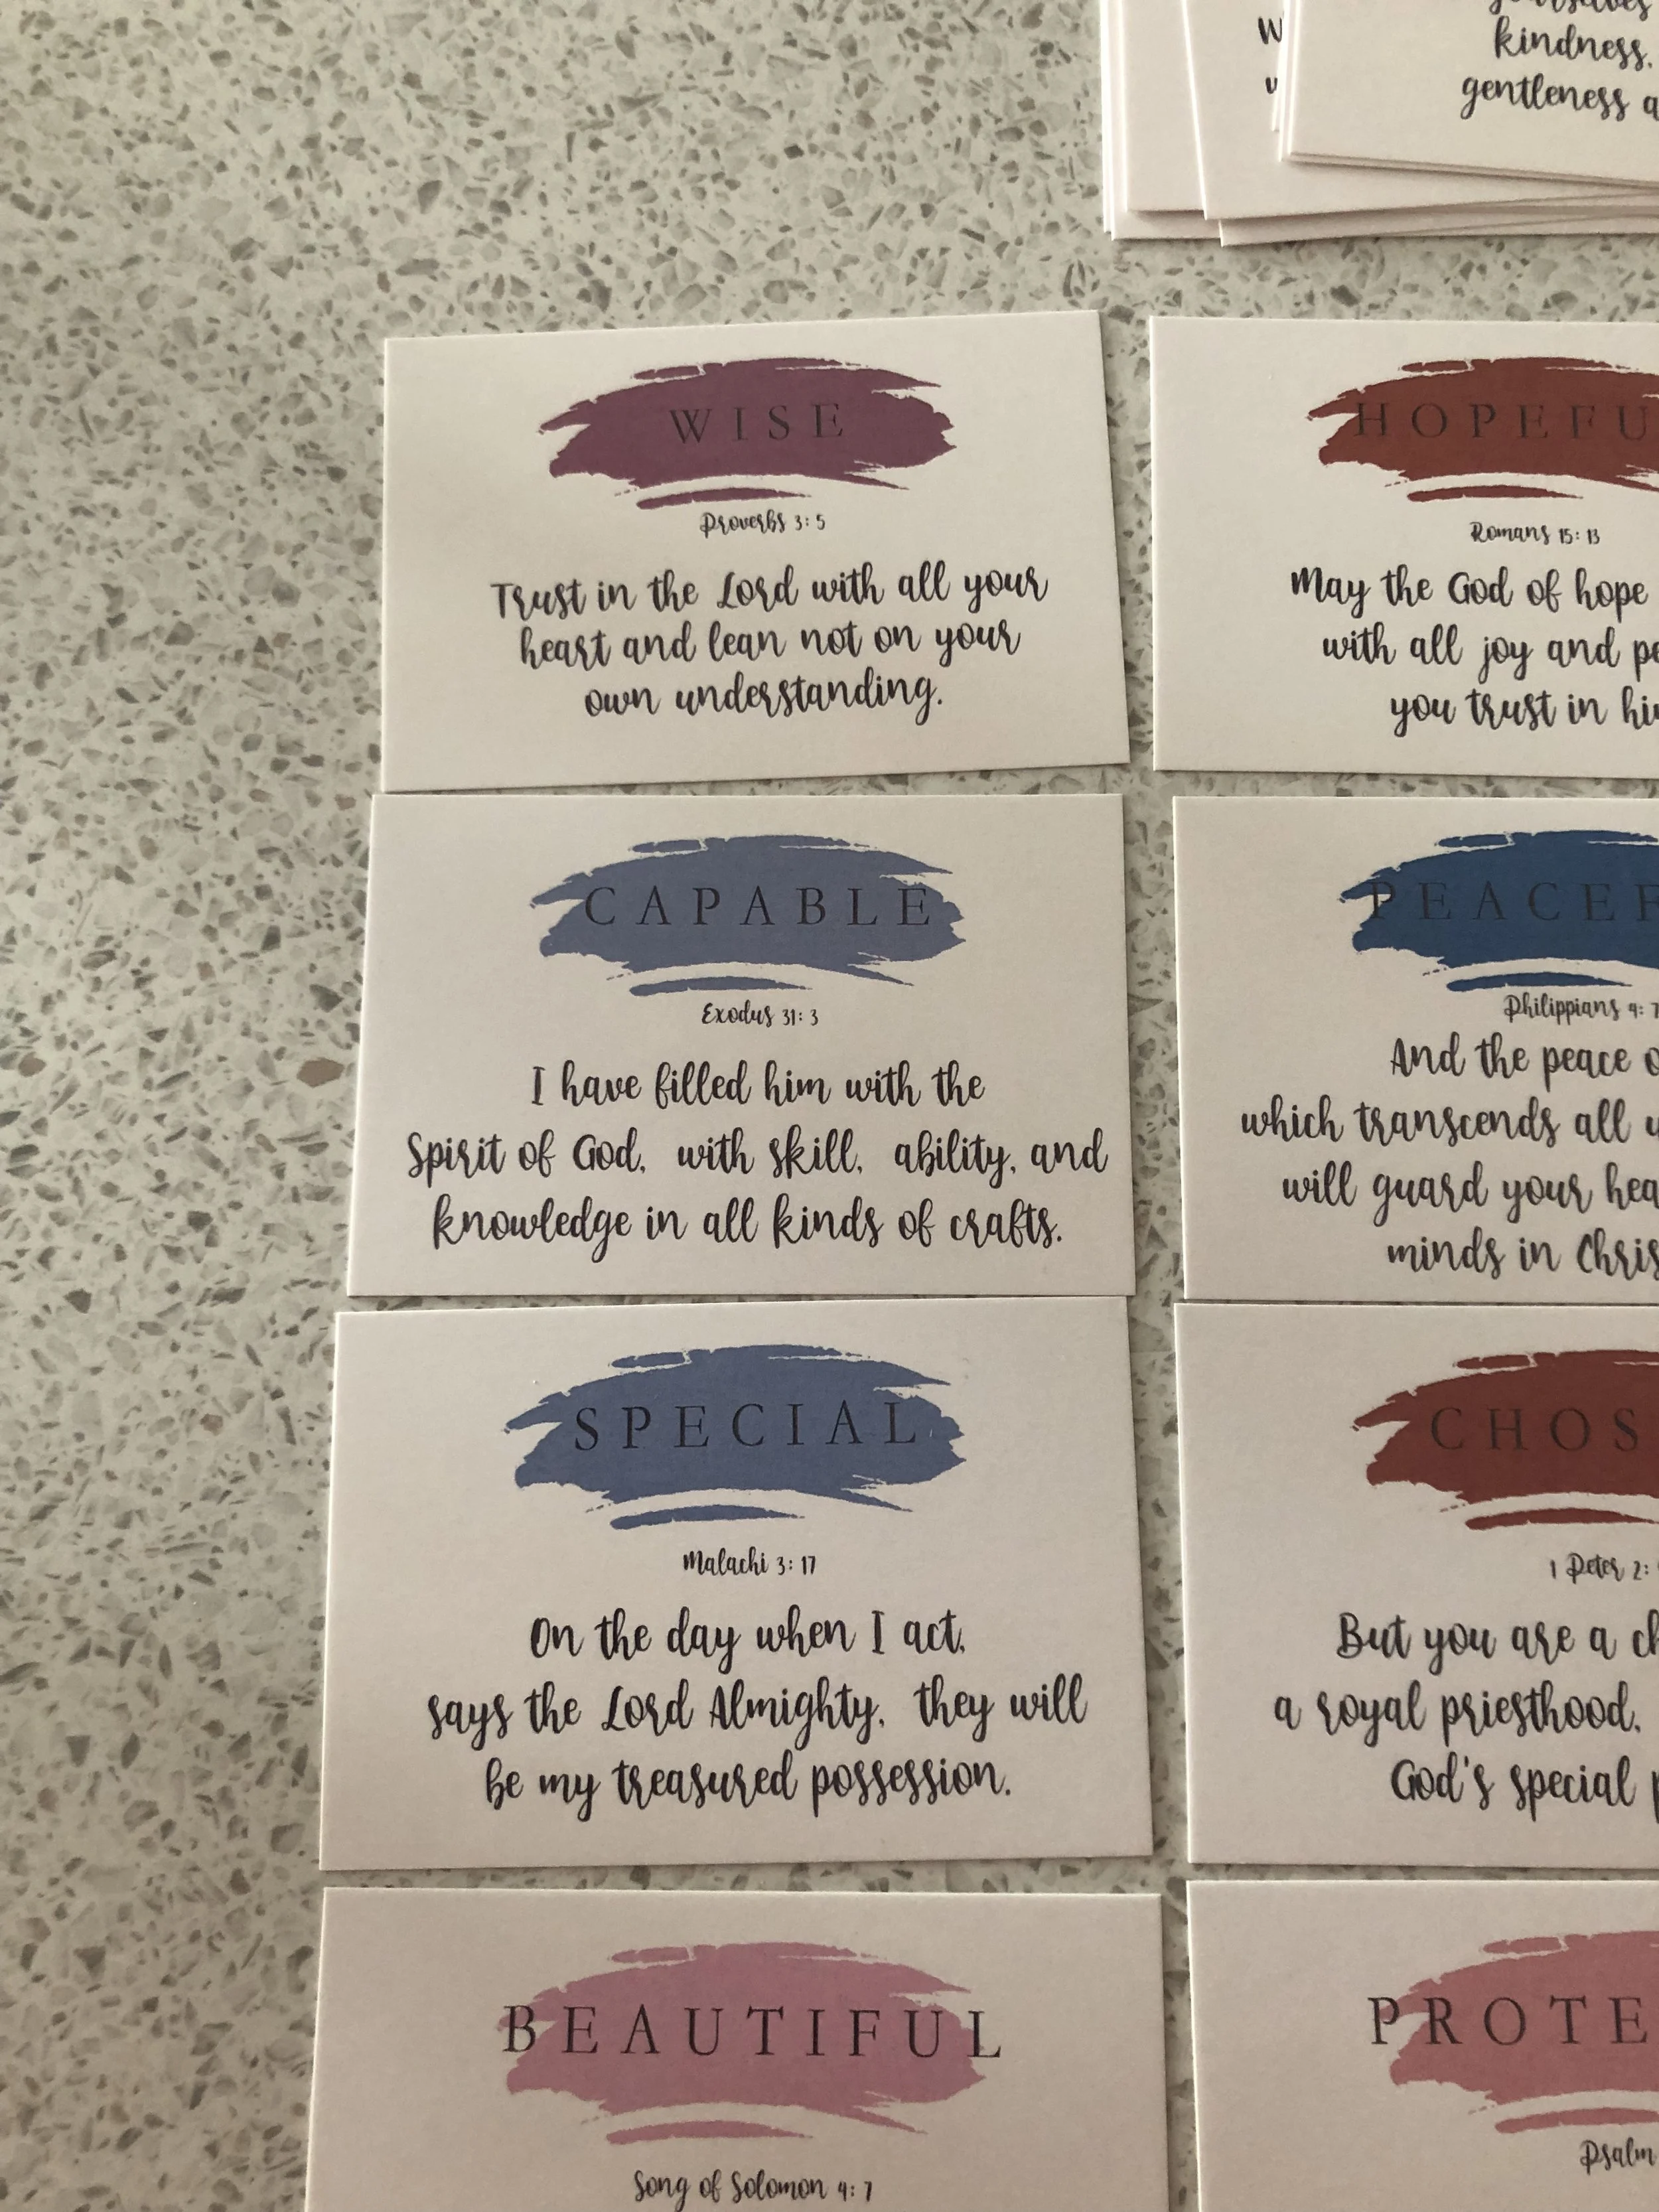 kindness,
gentleness
WISE
Proverbs 3: 5
Trust in the Lord with all your
heart and lean not on your
own understanding.
HOPEFU
Romans 15: 13
May the God of hope
with all joy and
you trust in
CAPABLE
Exodus 31: 3
I have filled him with the
Spirit of God, with skill, ability, and
knowledge in all kinds of crafts.
PEACEF
Philippians 4: 7
And the peace
which transcends all
will guard your
minds in
SPECIAL
Malachi 3: 17
On the day when I act,
says the Lord Almighty, they will
be my treasured possession.
CHOS
1 Peter 2:
But you are a
a royal priesthood,
God's special
BEAUTIFUL
Song of Solomon 4: 7
PROTE
Psalm